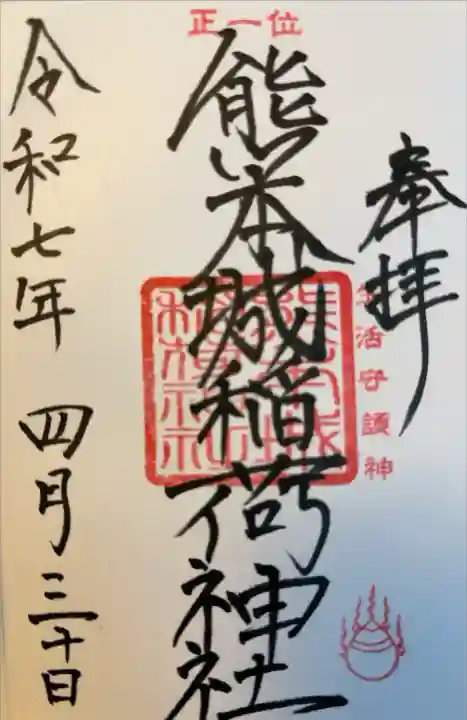 正一位
奉拝
生活守護神
熊本城稲荷神社
令和七年 四月三十日